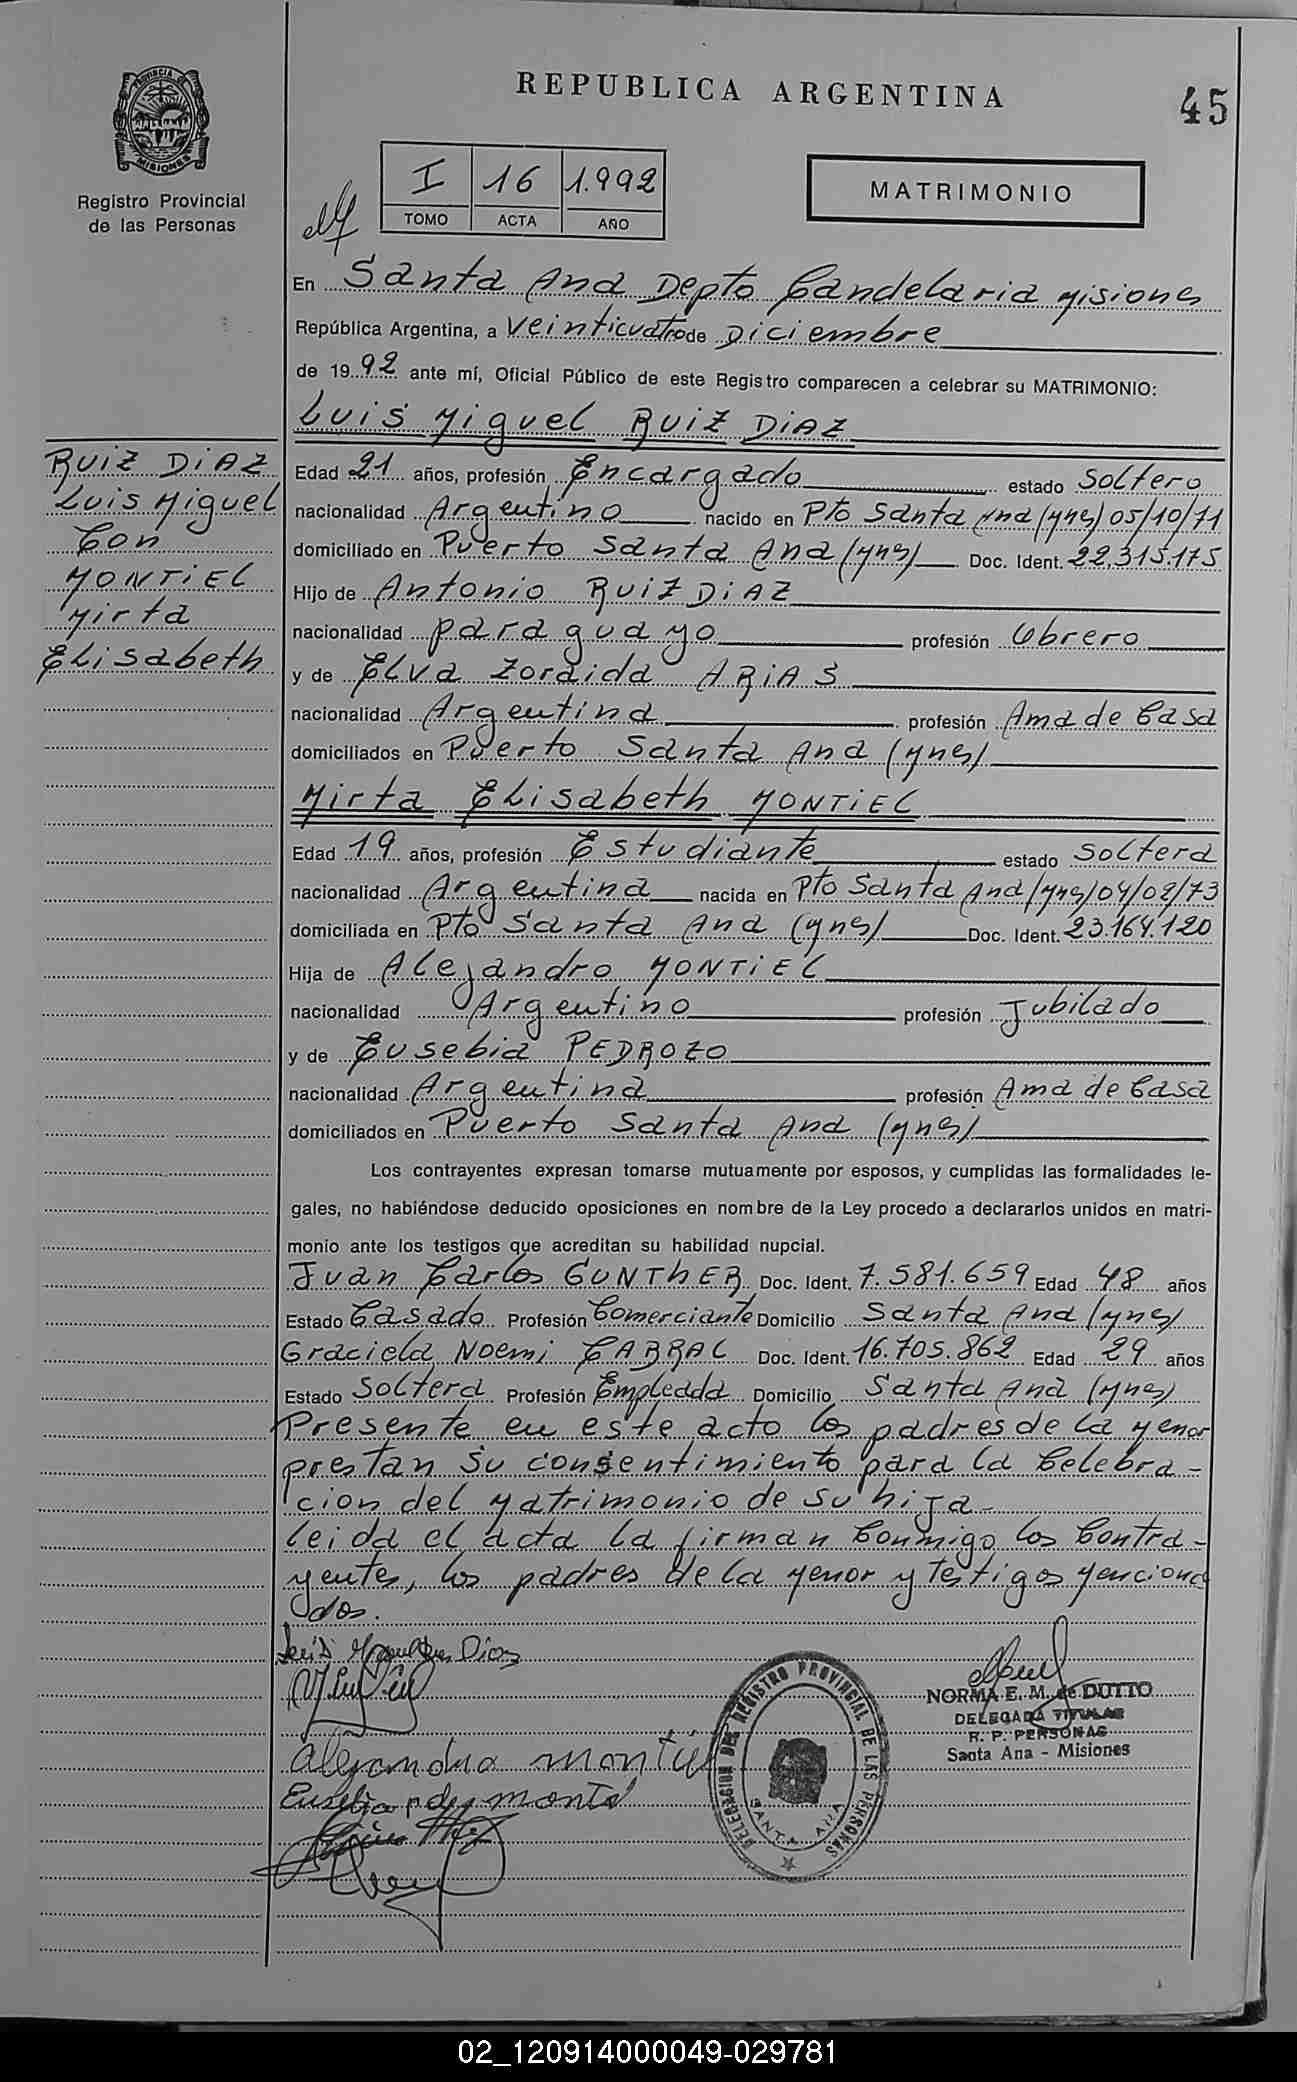 REPUBLICA ARGENTINA
45
PROVINCIA DE MISIONES
Registro Provincial
de las Personas
I 16 1.992
TOMO ACTA AÑO
MATRIMONIO
En Santa Ana Depto Candelaria Misiones
República Argentina, a Veinticuatro de Diciembre
de 1992 ante mí, Oficial Público de este Registro comparecen a celebrar su MATRIMONIO:
Luis Miguel RUIZ DIAZ
RUIZ DIAZ
Luis Miguel
Con
MONTIEL
Mirta
Elisabeth
Edad 21 años, profesión Encargado estado Soltero
nacionalidad Argentino nacido en Pto Santa Ana (Mnes) 05/10/71
domiciliado en Puerto Santa Ana (Mnes) Doc. Ident. 22.315.175
Hijo de Antonio RUIZ DIAZ
nacionalidad paraguayo profesión Obrero
y de Elva Zoraida ARIAS
nacionalidad Argentina profesión Ama de Casa
domiciliados en Puerto Santa Ana (Mnes)
Mirta Elisabeth MONTIEL
Edad 19 años, profesión Estudiante estado Soltera
nacionalidad Argentina nacida en Pto Santa Ana (Mnes) 04/02/73
domiciliada en Pto Santa Ana (Mnes) Doc. Ident. 23.164.120
Hija de Alejandro MONTIEL
nacionalidad Argentino profesión Jubilado
y de Eusebia PEDROZO
nacionalidad Argentina profesión Ama de Casa
domiciliados en Puerto Santa Ana (Mnes)
Los contrayentes expresan tomarse mutuamente por esposos, y cumplidas las formalidades le-
gales, no habiéndose deducido oposiciones en nombre de la Ley procedo a declararlos unidos en matri-
monio ante los testigos que acreditan su habilidad nupcial.
Juan Carlos GUNTHER Doc. Ident. 7.581.659 Edad 48 años
Estado Casado Profesión Comerciante Domicilio Santa Ana (Mnes)
Graciela Noemi CABRAL Doc. Ident. 16.705.862 Edad 29 años
Estado Soltera Profesión Empleada Domicilio Santa Ana (Mnes)
Presente en este acto los padres de la Menor
prestan su consentimiento para la Celebra-
cion del Matrimonio de su hija
leida el acta la firman Conmigo los Contra-
yentes, los padres de la Menor y Testigos Menciona
dos.
Luis Miguel Ruiz Diaz
Alejandro Montiel
Eusebia p de montiel
DELEGACION DEL REGISTRO PROVINCIAL DE LAS PERSONAS
SANTA ANA
NORMA E. M. de DUTTO
DELEGADA TITULAR
R. P. PERSONAS
Santa Ana - Misiones
02_120914000049-029781